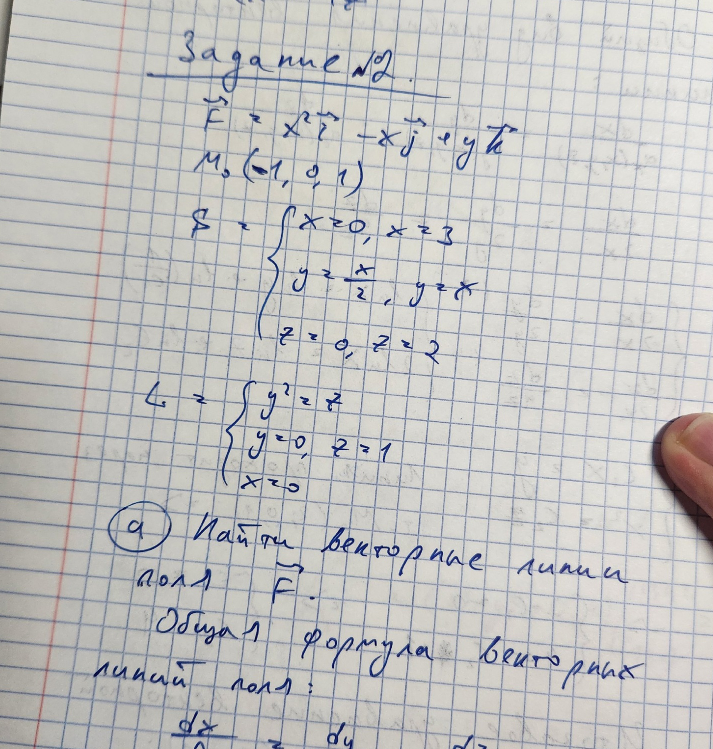 Задание №2.
F⃗ = x² i⃗ - x j⃗ + y k⃗
M₀ (-1, 0, 1)
S = { x=0, x=3
y = x/2, y=x
z=0, z=2
L = { y² = z
y=0, z=1
x=0
(а) Найти векторные линии
поля F⃗.
Общая формула векторных
линий поля:
dx = dy dz